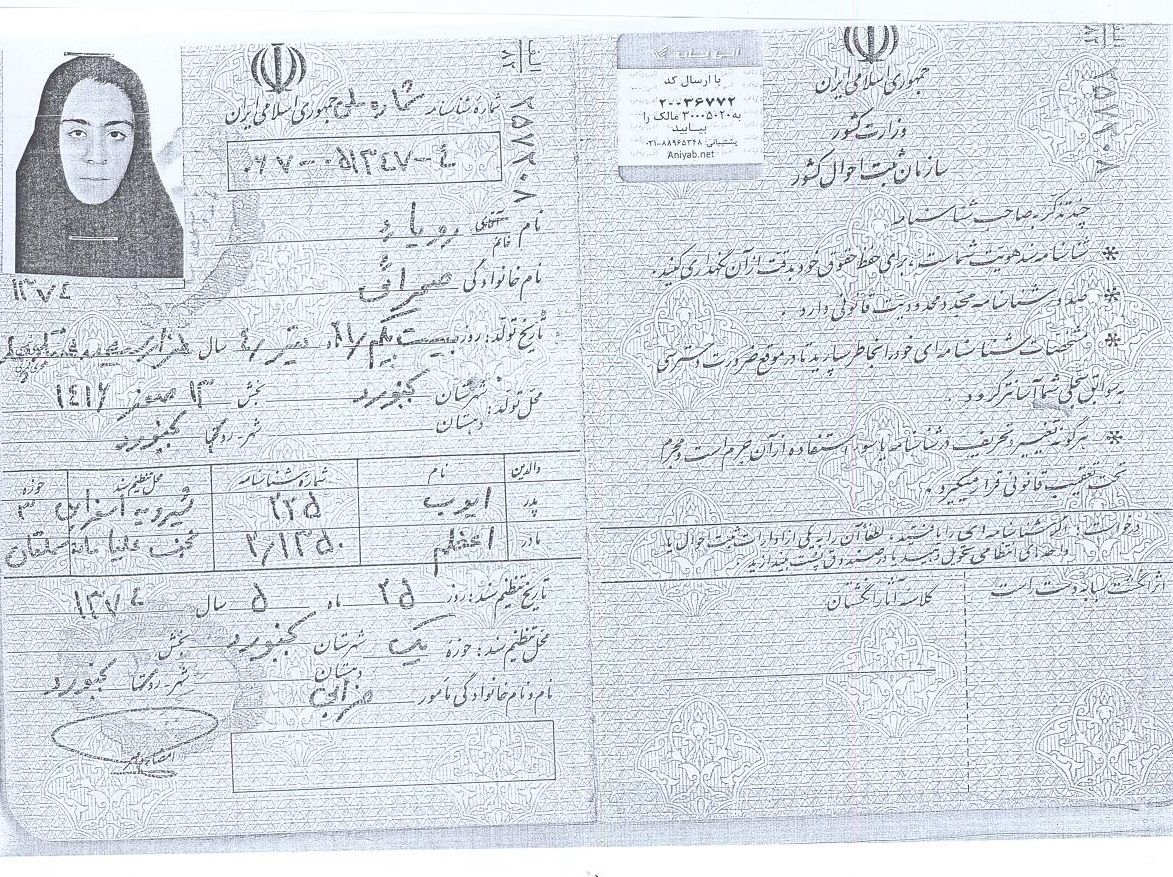 جمهوری اسلامی ایران
وزارت کشور
سازمان ثبت احوال کشور
با ارسال کد
۲۰۰۳۶۷۷۲
به ۳۰۰۰۵۰۲۰ مالک را
بیابید
پشتیبانی: ۸۸۹۶۵۲۴۸-۰۲۱
Aniyab.net
چند تذکر به صاحب شناسنامه
* شناسنامه سند هویت شماست، برای حفظ حقوق خود بدقت از آن نگهداری کنید.
* صدور شناسنامه مجدد محدودیت قانونی دارد.
* مشخصات شناسنامه ای خود را بخاطر بسپارید تا در موقع ضرورت دسترسی
به سوابق سجلی شما آسانتر گردد.
* هر گونه تغییر و تحریف در شناسنامه یا سوء استفاده از آن جرم است و مجرم
تحت تعقیب قانونی قرار میگیرد.
درخواست: اگر شناسنامه ای را یافتید، لطفاً آن را به یکی از ادارات ثبت احوال یا
واحدهای انتظامی تحویل دهید یا در صندوق پست بیندازید.
اثر انگشت سبابه دست راست
کلاسه آثار انگشتان
جمهوری اسلامی ایران
۲۵۷۲۰۸
شماره شناسنامه شماره ملی
۰۶۷۰۰۵۱۳۴۷-۴
۱۳۷۴
نام آقای خانم رویا
نام خانوادگی صحرائی
تاریخ تولد: روز بیست یکم/۲۱ ماه تیر/۴ سال
محل تولد: شهرستان بجنورد بخش ۱۳ صفر ۱۴۱۶
دهستان شهر-روستا بجنورد
والدین نام شماره شناسنامه محل تنظیم سند حوزه
پدر ایوب ۲۲۵ اسفراین ۳
مادر اعظم ۲/۱۳۵۰
تاریخ تنظیم سند: روز ۲۵ ماه ۵ سال ۱۳۷۴
محل تنظیم سند: حوزه یک شهرستان بجنورد بخش
دهستان شهر-روستا بجنورد
نام و نام خانوادگی مامور
امضاء و مهر